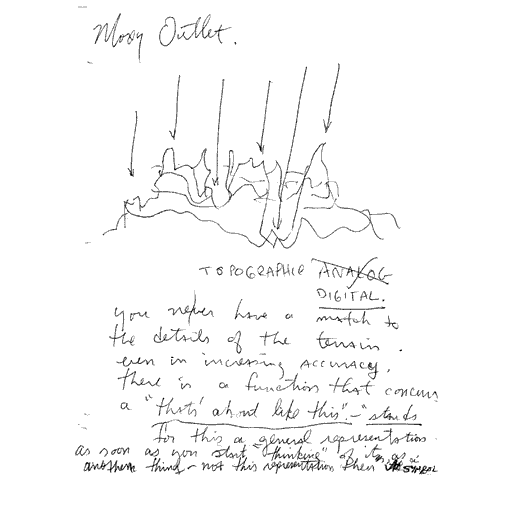 Moxy Outlet.
TOPOGRAPHIC ANALOG
DIGITAL.
you never have a match to
the details of the terrain.
even in increasing accuracy,
there is a function that concerns
a "that's about like this".-"stands
for this a general representation.
as soon as you start "thinking" of it as a
another thing - not this representation then SYMBOL